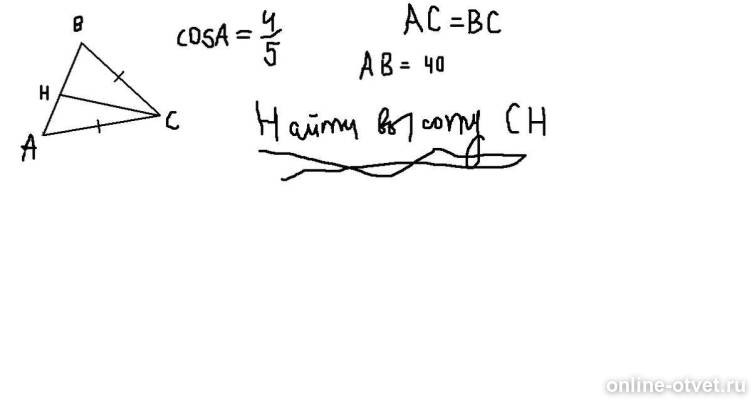 B
H
A
C
cosA = 4/5
AC = BC
AB = 40
Найти высоту CH
online-otvet.ru